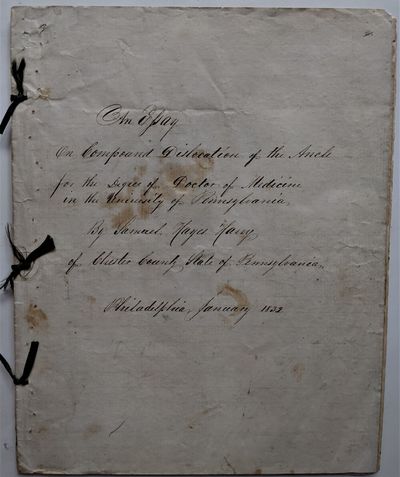 An Essay
On Compound Dislocation of the Ancle
for the Degree of Doctor of Medicine
in the University of Pennsylvania
By Samuel Hayes Harry
of Chester County State of Pennsylvania
Philadelphia, January 1832